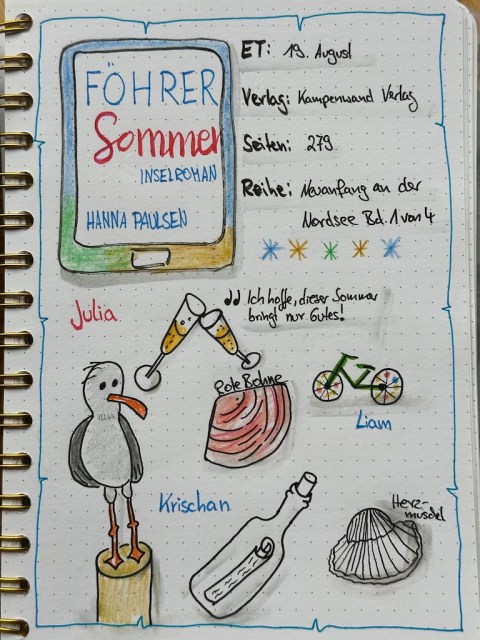 FÖHRER
Sommer
INSELROMAN
HANNA PAULSEN
ET: 19. August
Verlag: Kampenwand Verlag
Seiten: 279
Reihe: Neuanfang an der
Nordsee Bd. 1 von 4
Julia
Ich hoffe, dieser Sommer
bringt nur Gutes!
Rote Bohne
Liam
Krischan
Herz-
muschel